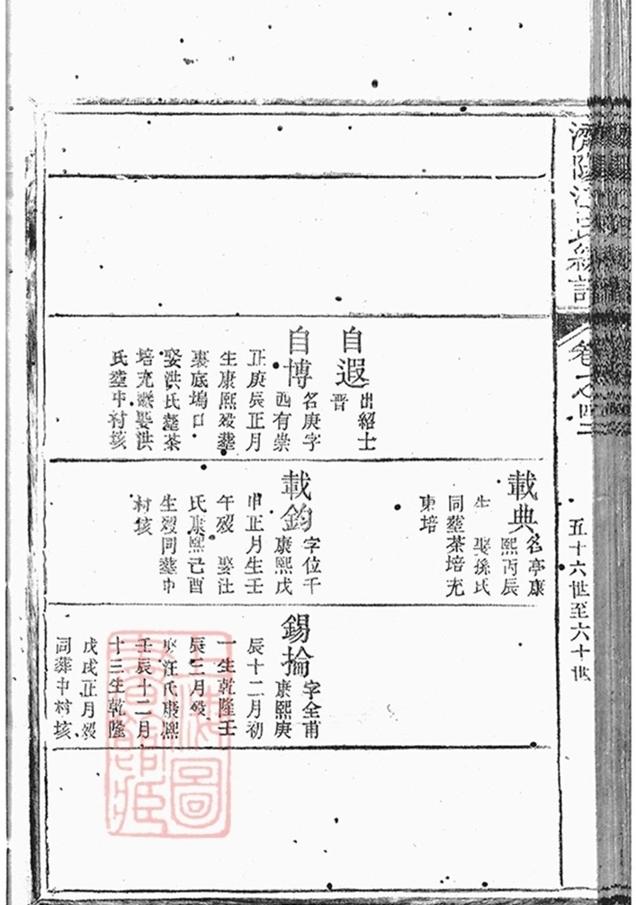 濟陽江氏統譜
卷之四
五十六世至六十世
自遐
出紹士
晋
自博
名庚字
西有崇
正庚辰正月
生康熙歿葬
裏底塢口
娶洪氏葬茶
培充歿娶洪
氏葬中村垓
載典
名亭康
熙丙辰
生 娶孫氏
同葬茶培充
東培
載鈞
字位千
康熙戊
申正月生壬
午歿 娶汪
氏康熙己酉
生歿同葬中
村垓
錫掄
字全甫
康熙庚
辰十二月初
一生乾隆壬
辰三月歿
娶汪氏康熙
壬辰十二月
十三生乾隆
戊戌正月歿
同葬中村垓
圖